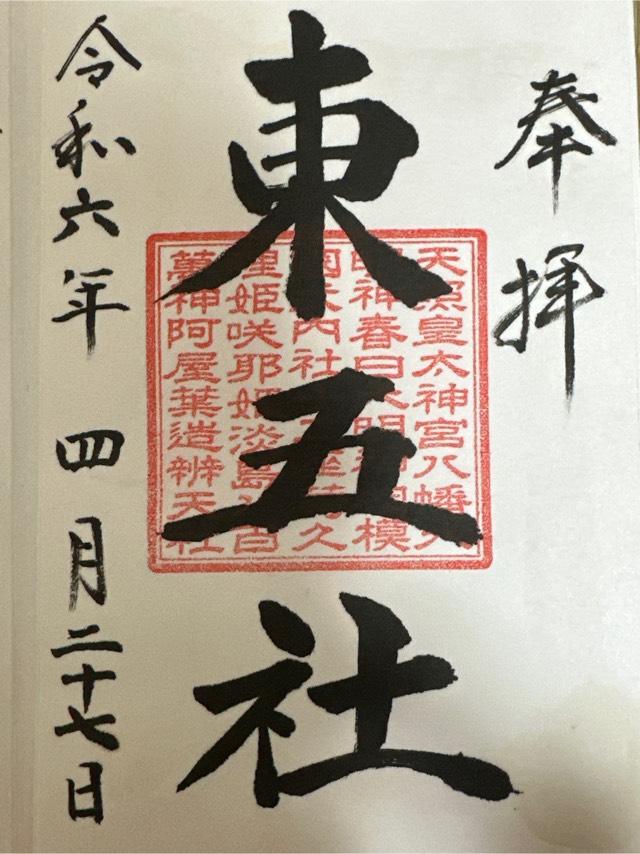 奉拝
東五社
天照皇太神宮八幡大
明神春日大明神相模
國六内社
皇姫咲耶姫淡島八百
萬神阿屋葉造辨天社
令和六年 四月二十七日